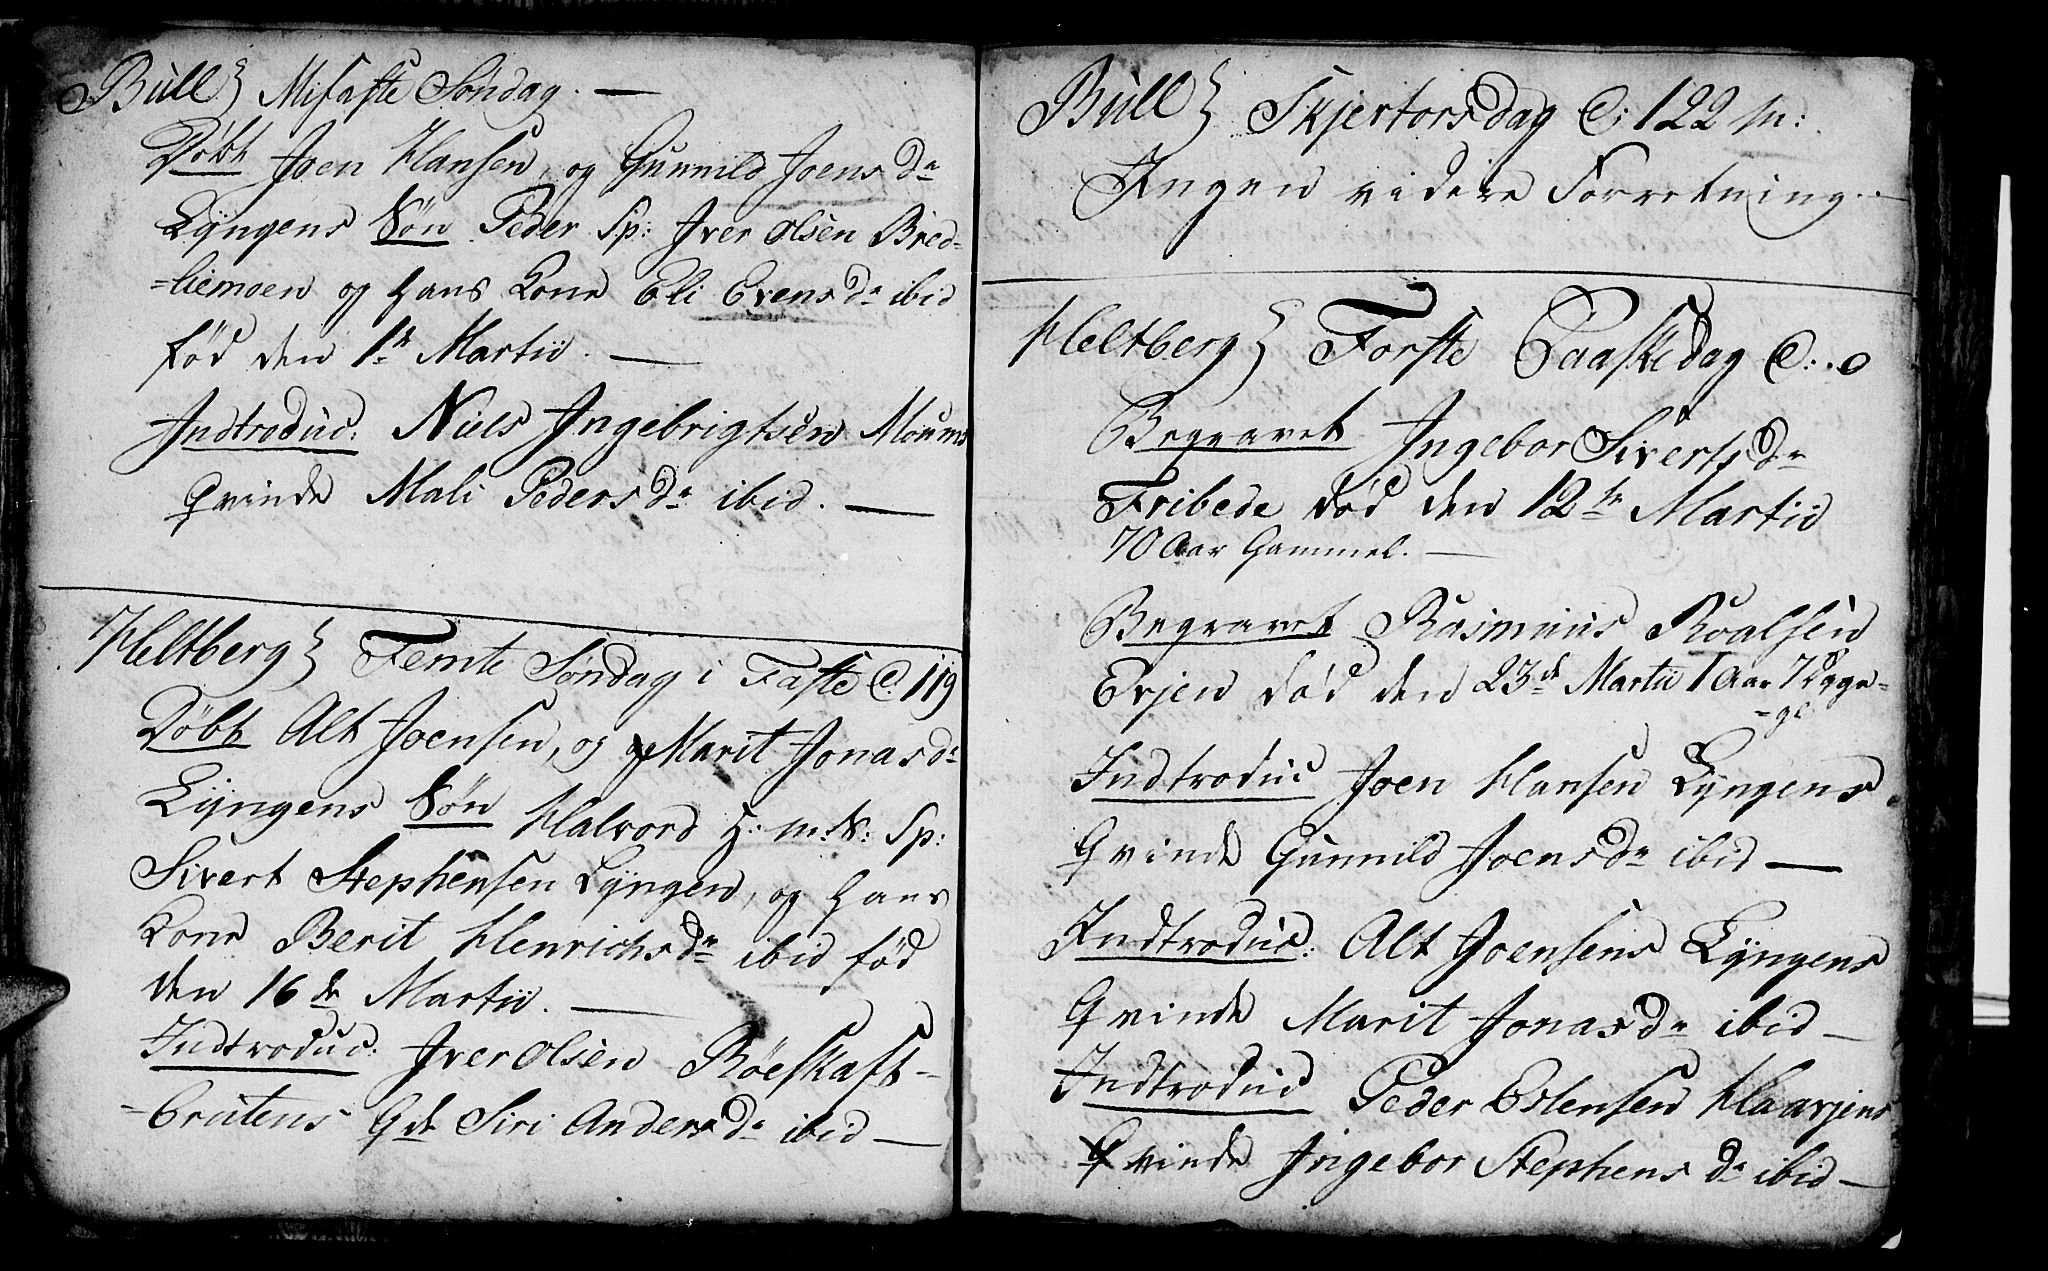 Büll} Mifaste Søndag. —
Døbt Joen Hansen, og Gunnild Joens Dr
Lÿngens Søn Peder Sp: Iver Olsen Bred-
=liemoen og hans Kone Eli Evens Dr ibid
fød den 1te Martii. —
Indtroduc: Niels Ingebrigtsen Moums
Qvinde Mali Peders Dr ibid. —
Heltberg} Femte Søndag i Faste C. 119
Døbt Alt Joensen, og Marit Jonas dr
Lÿngens Søn Halvord H: m: K: Sp:
Sivert Stephensen Lÿngen, og hans
Kone Berit Henrichs Dr ibid fød
den 16de Martii. —
Indtroduc: Iver Olsen Böeskaft-
=Bratens Qde Siri Anders Dr ibid —
Büll} Skjertorsdag C: 122 sn:
Ingen videre Forretning. —
Heltberg} Forste Paaskedag C: . 0
Begravet Ingebor Siverts Dr
Fribede død den 12te Martii
70 Aar Gammel. —
Begravet Rasmus Roalsen
Evjen død den 23de Martii 1 Aar 7 Dage
=ge
Indtroduc Joen Hansen Lÿngens
Qvinde Gunnild Joens Dr ibid —
Indtroduc: Alt Joensens Lÿngens
Qvinde Marit Jonas Dr ibid —
Indtroduc Peder Estensen Haarjens
Qvinde Ingebor Stephens Dr ibid —